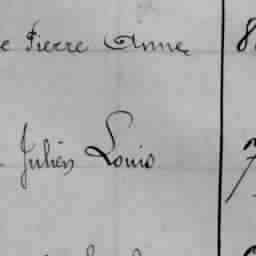 e Pierre Anne 8
Julien Louis 7